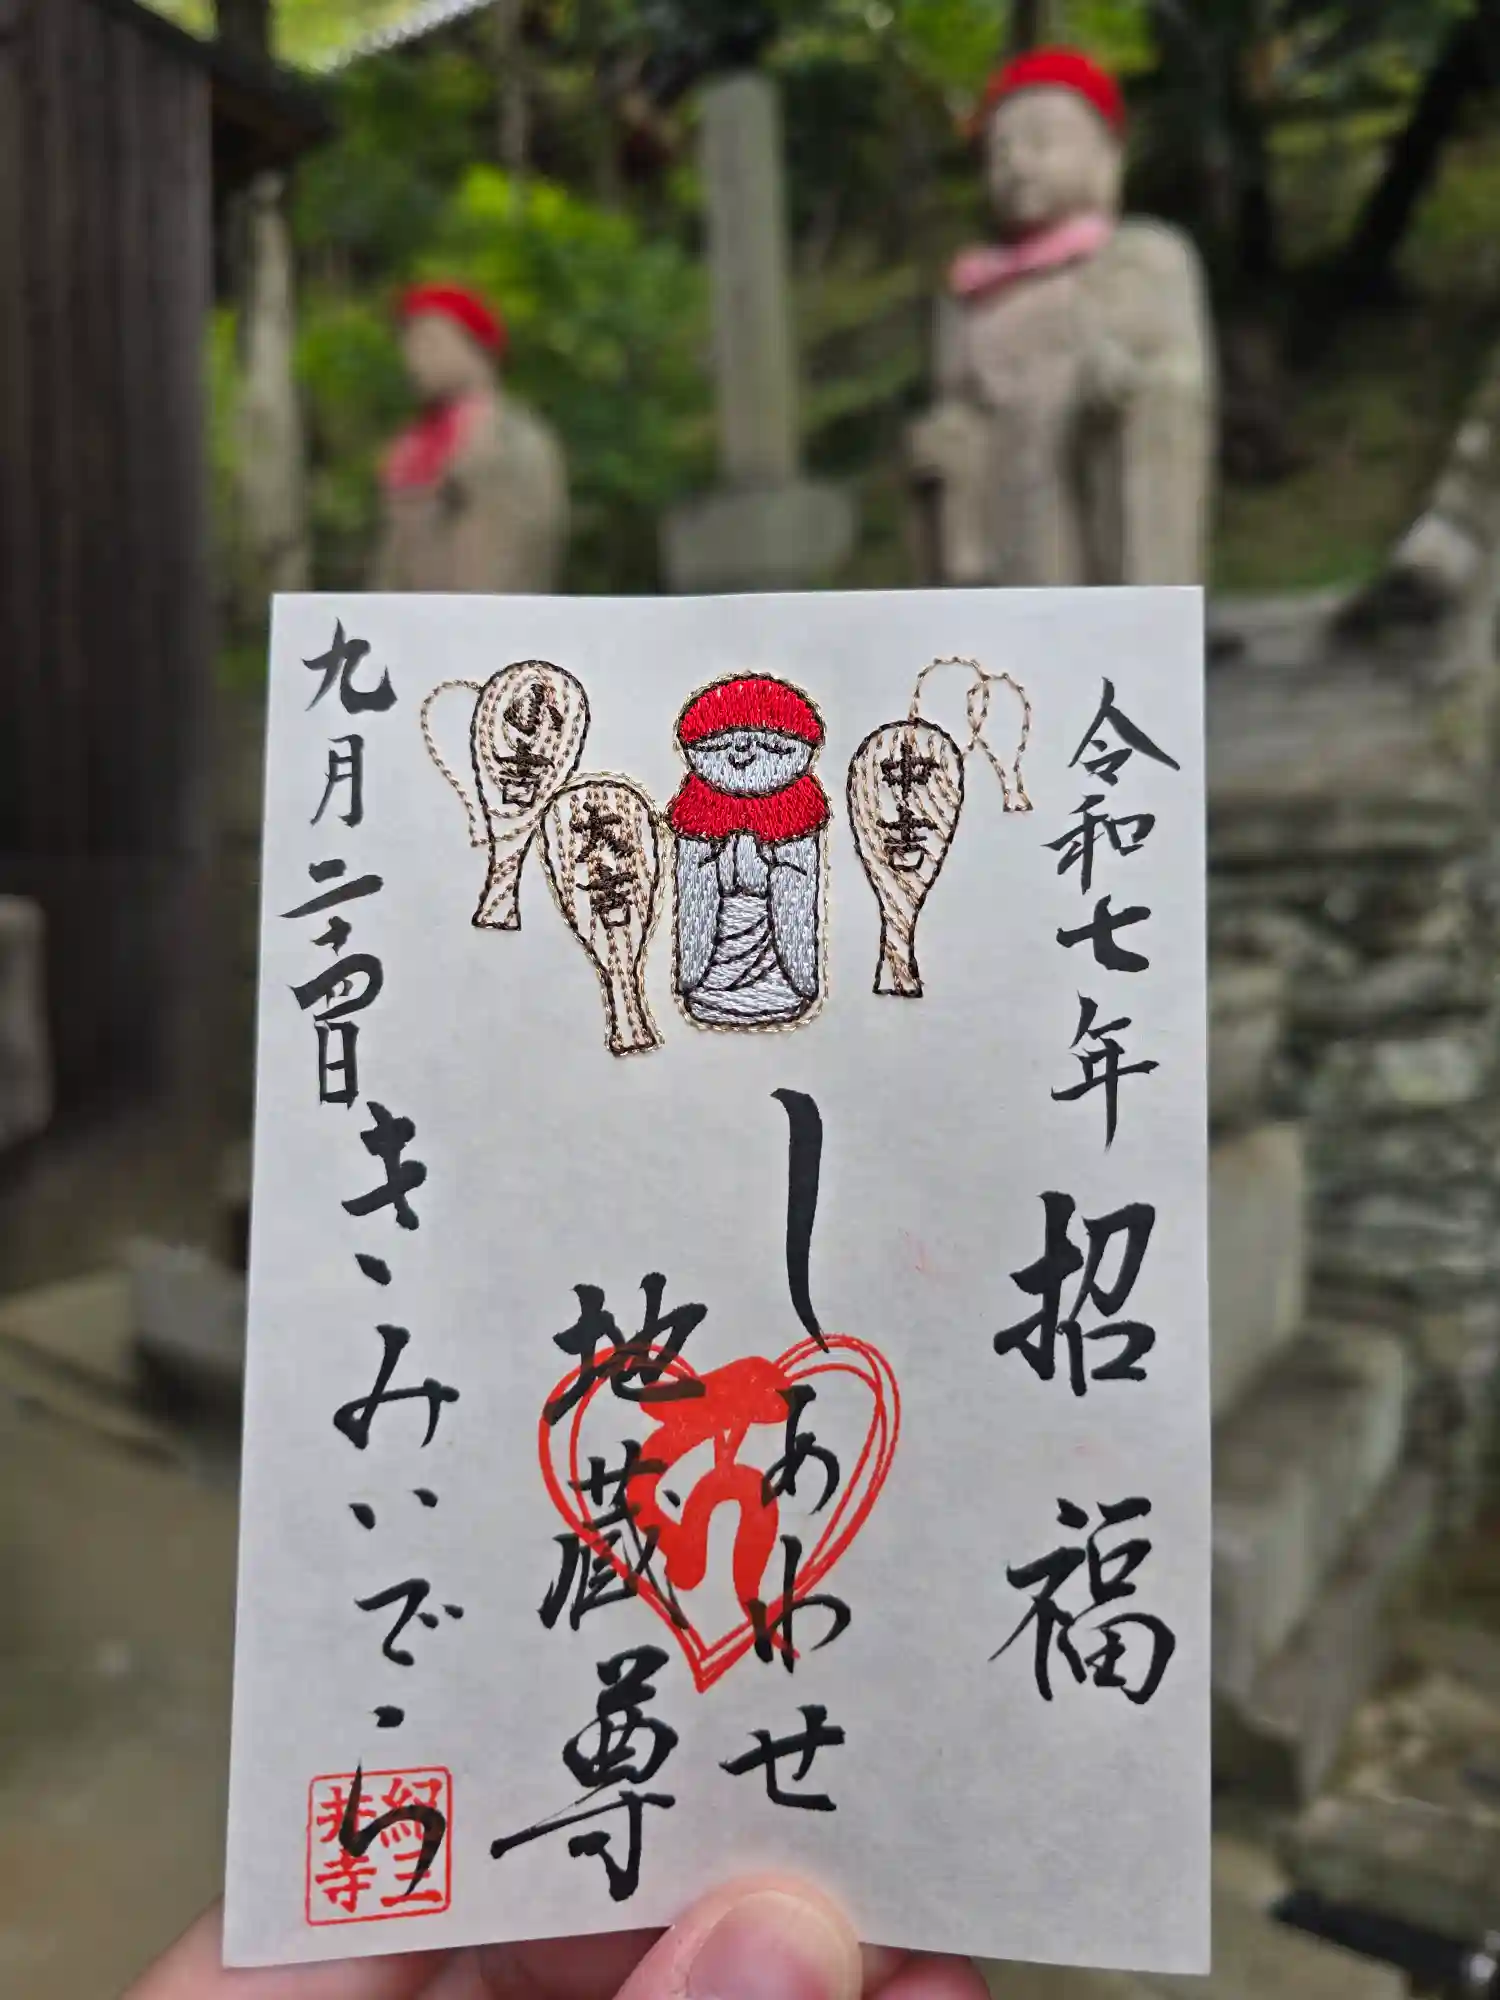 令和七年 招福
しあわせ
地蔵尊
九月二十四日 きみいでら
紀三井寺
小吉
大吉
中吉